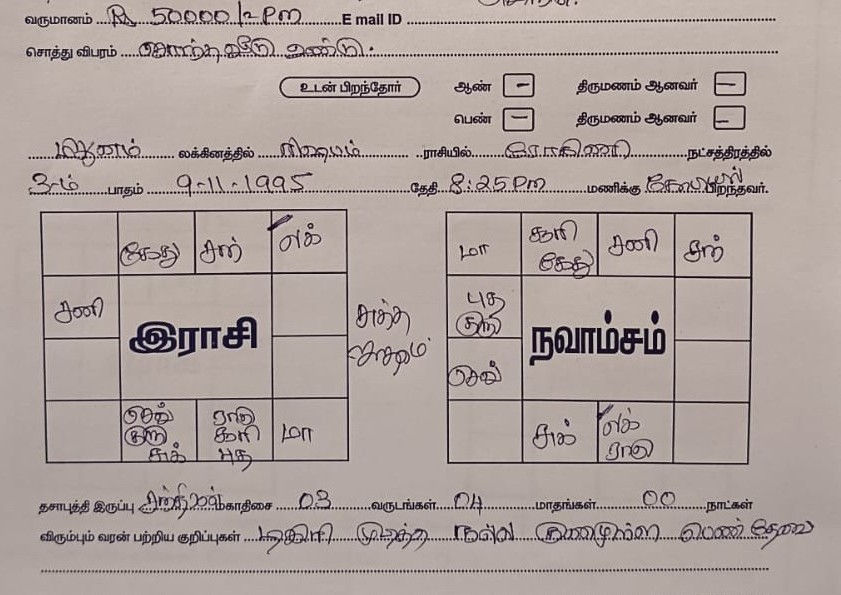 வருமானம் Rs 50000/2 Pm E mail ID
சொத்து விபரம் சொந்த வீடு உண்டு.
உடன் பிறந்தோர் ஆண் - திருமணம் ஆனவர் -
பெண் - திருமணம் ஆனவர் -
மிதுனம் லக்கினத்தில் ரிஷபம் ராசியில் ரோகிணி நட்சத்திரத்தில்
3-ம் பாதம் 9-11-1995 தேதி 8:25 Pm மணிக்கு பிறந்தவர்.
கேது சந் லக்
சனி
இராசி
சுத்த
செவ் குரு சுக்
ராகு சூரி புத
மா
மா
சூரி கேது
சனி
சந்
புத குரு
நவாம்சம்
செவ்
சுக்
லக் ராகு
தசாபுத்தி இருப்பு சந்திரன் மகாதிசை 03 வருடங்கள் 04 மாதங்கள் 00 நாட்கள்
விரும்பும் வரன் பற்றிய குறிப்புகள் டிகிரி முடித்த நல்ல குணமுள்ள பெண் தேவை